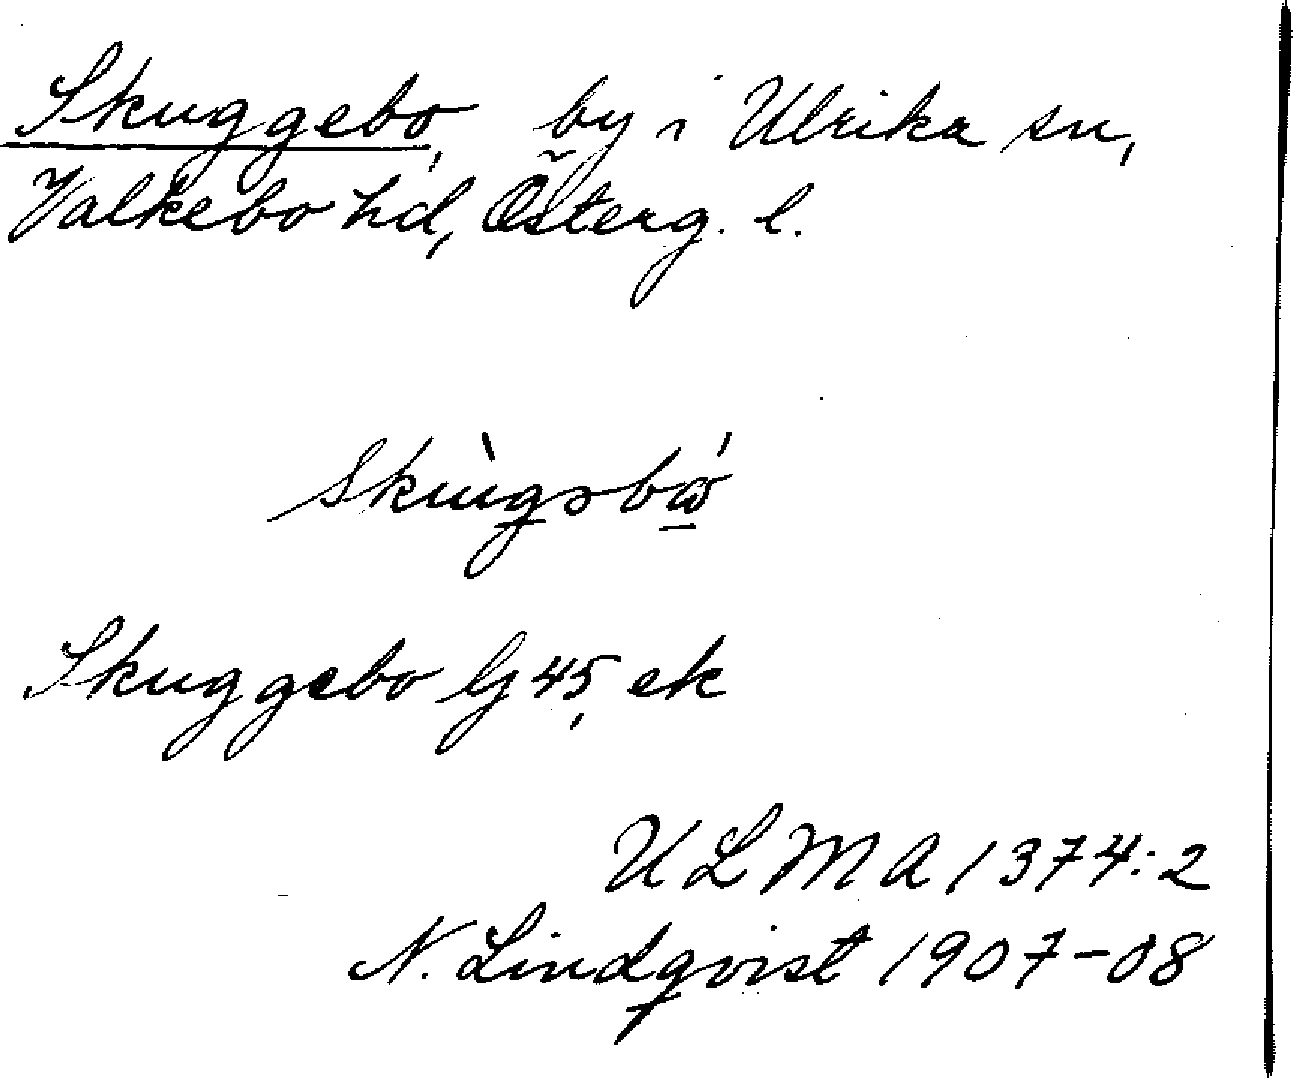 Skuggebo, by i Ulrika sn,
Valkebo hd, Österg. l.
Skuggebo G 45, ek
ULMA 1374:2
N. Lindqvist 1907-08